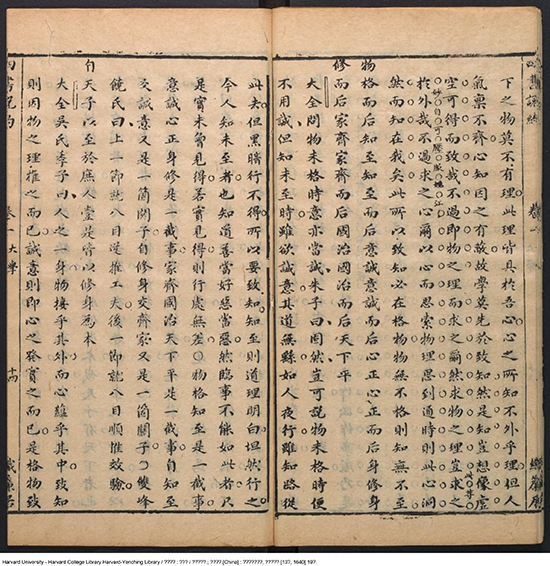 下之物莫不有理此理皆具於吾心心之所知不外乎理但人
氣稟不齊心知因之有蔽故學莫先於致知然是知豈想像虛
空可得而致哉不過即物之理而求之爾然求物之理豈求之
於外哉不過求之心爾以心而思索物理思到通時則此心洞
然而知在我矣此所以致知必在格物物無不格則知無不至
物格而后知至知至而后意誠意誠而后心正心正而后身修身
修而后家齊家齊而后國治國治而后天下平
大全問物未格時意亦當誠朱子曰固然豈可說物未格時便
不用誠但知未至時雖欲誠意其道無繇如人夜行雖知路從
此去但黑暗行不得所以要致知知至則道理明白坦然行之
今人知未至者也知道善當好惡當惡然臨事不能如此者只
是實未曾見得若實見得則行處無差○物格知至是一截事
意誠心正身修是一截事家齊國治天下平是一截事自知至
交誠意又是一箇關子自修身交齊家又是一箇關子○雙峰
饒氏曰上一節就八目逆推工夫後一節就八目順推效驗
自天子以至於庶人壹是皆以修身為本
大全吳氏季子曰人之一身物接乎其外而心蘊乎其中致知
則因物之理推之而已誠意則即心之發實之而已是格物致
四書說約 卷一 大學 十四 織簾居
Harvard University - Harvard College Library Harvard-Yenching Library / ???? : ??? / ????? ; ???? [China] : ???????, ????? [13?, 1640] 197.